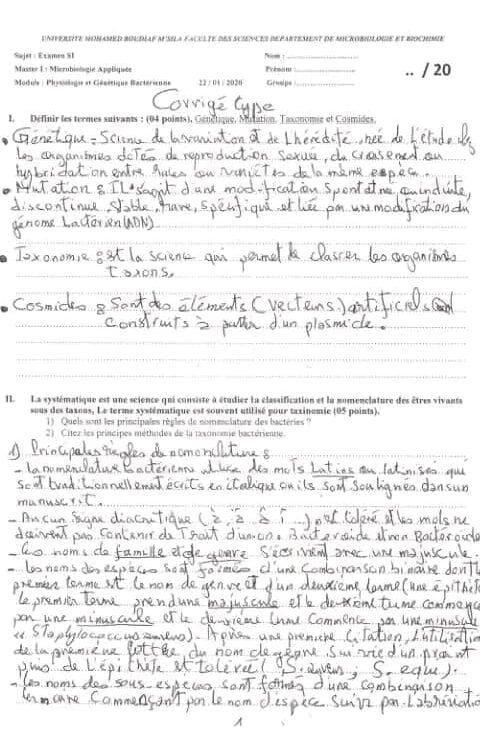 UNIVERSITE MOHAMED BOUDIAF M'SILA FACULTE DES SCIENCES DEPARTEMENT DE MICROBIOLOGIE ET BIOCHIMIE
Sujet : Examen S1
Nom :
Master I : Microbiologie Appliquée
Prénom :
.. / 20
Module : Physiologie et Génétique Bactérienne
22 / 01 / 2020
Groupe :
Corrigé type
I. Définir les termes suivants : (04 points), Génétique, Mutation, Taxonomie et Cosmides.
• Génétique : Science de la variation et de L'hérédité, née de l'étude
les organismes dotés de reproduction sexuée, du croisement ou
hybridation entre races ou variétés de la même espèce.
• Mutation : IL s'agit d'une modification spontanée ou induite,
discontinue, stable, rare, spécifique et liée par une modification du
génome bactérien (ADN)
• Taxonomie : est la science qui permet de classer les organismes
taxons.
• Cosmides : Sont des éléments (vecteurs) artificiels
construits à partir d'un plasmide.
II. La systématique est une science qui consiste à étudier la classification et la nomenclature des êtres vivants
sous des taxons, Le terme systématique est souvent utilisé pour taxinomie (05 points).
1) Quels sont les principales règles de nomenclature des bactéries ?
2) Citez les principes méthodes de la taxonomie bactérienne.
1) Principales règles de nomenclature :
- La nomenclature bactérienne utilise des mots Latins ou latinisés qui
sont traditionnellement écrits en italique ou ils sont soulignés dans un
manuscrit.
- Aucun signe diacritique ( ... ) n'est toléré et les mots ne
doivent pas contenir de Trait d'union.
- Les noms de famille et de genre s'écrivent avec une majuscule.
- Les noms des espèces sont formés d'une combinaison binaire dont le
premier terme est le nom de genre et d'un deuxième terme (une épithète
Le premier terme prend une majuscule et le deuxième terme commence
par une minuscule et le deuxième terme commence par une minuscule
Staphylococcus aureus). Après une première citation, l'utilisation
de la première lettre du nom de genre suivie d'un point
puis de l'épithète est toléré (S. aureus ; S. equi).
- Les noms des sous-espèces sont formés d'une combinaison
ternaire commençant par le nom d'espèce suivi par l'abréviation
1